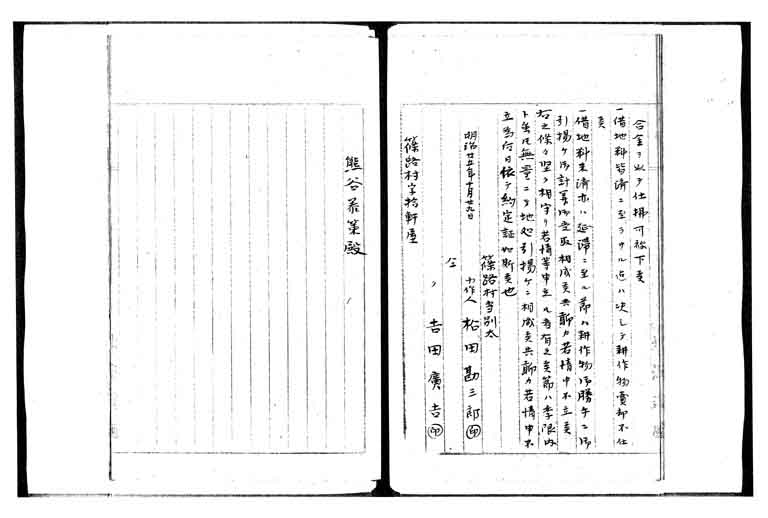 合金ヲ以テ仕拂可被下夛
一借地料皆済ニ至ラサル迄ハ决シテ耕作物賣却不仕
夛
一借地料未済亦ハ延滞ニ至ル節ハ耕作物御勝手ニ御
引揚ケ御計算御受取相成夛共聊カ苦情申不立夛
右之條々堅ク相守リ若情等申立ル者有之夛節ハ季限内
ト雖圧無量ニテ地処引揚ケニ相成夛共聊カ苦情申不
立為后日依テ約定証如斯夛也
明治廿五年十月廿九日
篠路村当別太
小作人 松田勘三郎㊞
仝
〃 吉田廣吉㊞
篠路村字拾軒屋
熊谷泰策殿